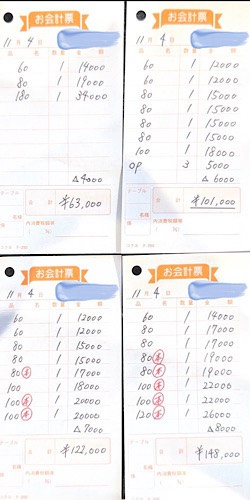 お会計票
11月 4日
品名 数量 金額
60 1 14000
80 1 19000
180 1 34000
△4000
テーブル
合計 ¥63,000
名様
内消費税額等
お会計票
11月 4日
品名 数量 金額
60 1 12000
60 1 12000
80 1 15000
80 1 15000
80 1 15000
80 1 15000
100 1 18000
OP 3 5000
△6000
テーブル
合計 ¥101,000
名様
内消費税額等
お会計票
11月 4日
品名 数量 金額
60 1 12000
60 1 12000
80 1 15000
80 1 15000
80本 1 17000
100 1 18000
100本 1 20000
100本 1 20000
△7000
テーブル
合計 ¥122,000
名様
内消費税額等
お会計票
11月 4日
品名 数量 金額
60 1 14000
80 1 17000
80 1 17000
80本 1 19000
80本 1 19000
100本 1 22000
100本 1 22000
120本 1 26000
△8000
テーブル
合計 ¥148,000
名様
内消費税額等